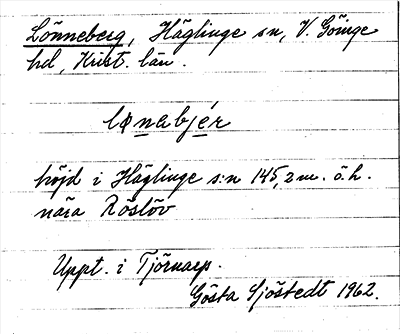 Lönneberg, Häglinge sn, V. Göinge
hd, Krist. län.
lønabjér
höjd i Häglinge s:n 145,2 m. ö.h.
nära Röslöv
Uppt. i Tjörnarp.
Gösta Sjöstedt 1962.